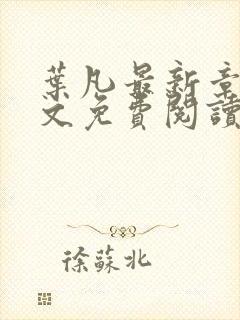 葉凡最新章
文免費閱讀
徐蘇北